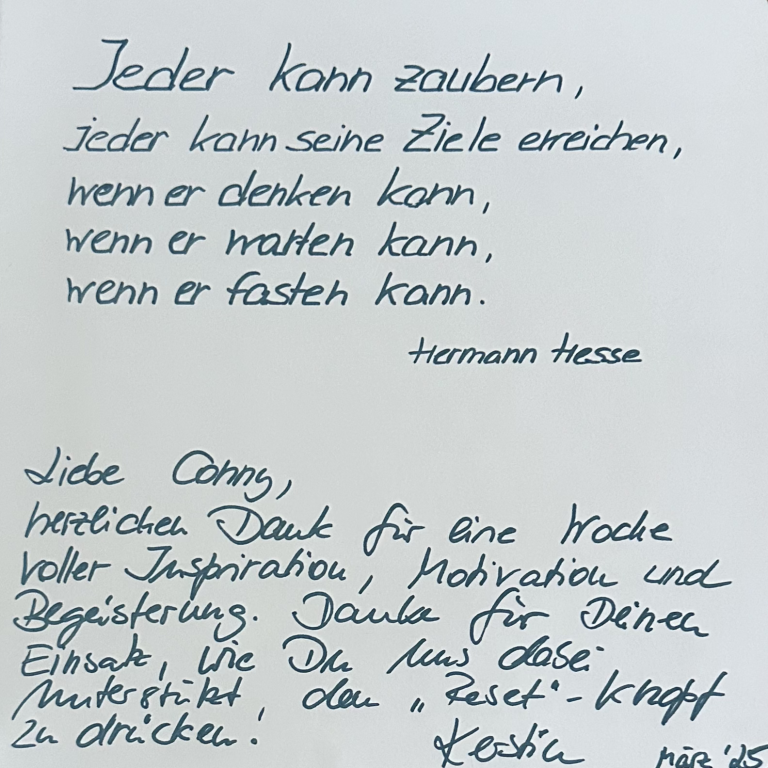 Jeder kann zaubern,
jeder kann seine Ziele erreichen,
wenn er denken kann,
wenn er warten kann,
wenn er fasten kann.
Hermann Hesse
Liebe Conny,
herzlichen Dank für eine Woche
voller Inspriration, Motivation und
Begeisterung. Danke für Deinen
Einsatz, wie Du uns dabei
unterstützt, den „Reset"-Knopf
zu drücken!
Kerstin März '25